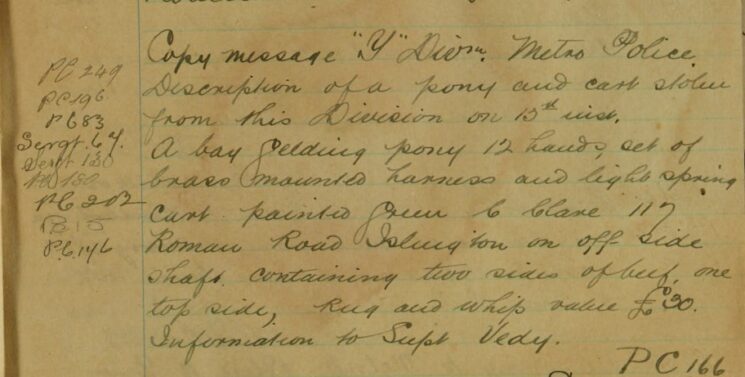 Copy message "Y" Divn. Metro Police.
Description of a pony and cart stolen
from this Division on 15th inst.
A bay gelding pony 12 hands, set of
brass mounted harness and light spring
cart painted green C Clare 117
Roman Road Islington on off side
shaft containing two sides of beef, one
top side, Rug and whip value £30.
Information to Supt Vedy.
PC 166
PC 249
PC 196
PC 83
Sergt. 64.
Sergt 130
PC 130
PC 202
PC 15
P.C. 146